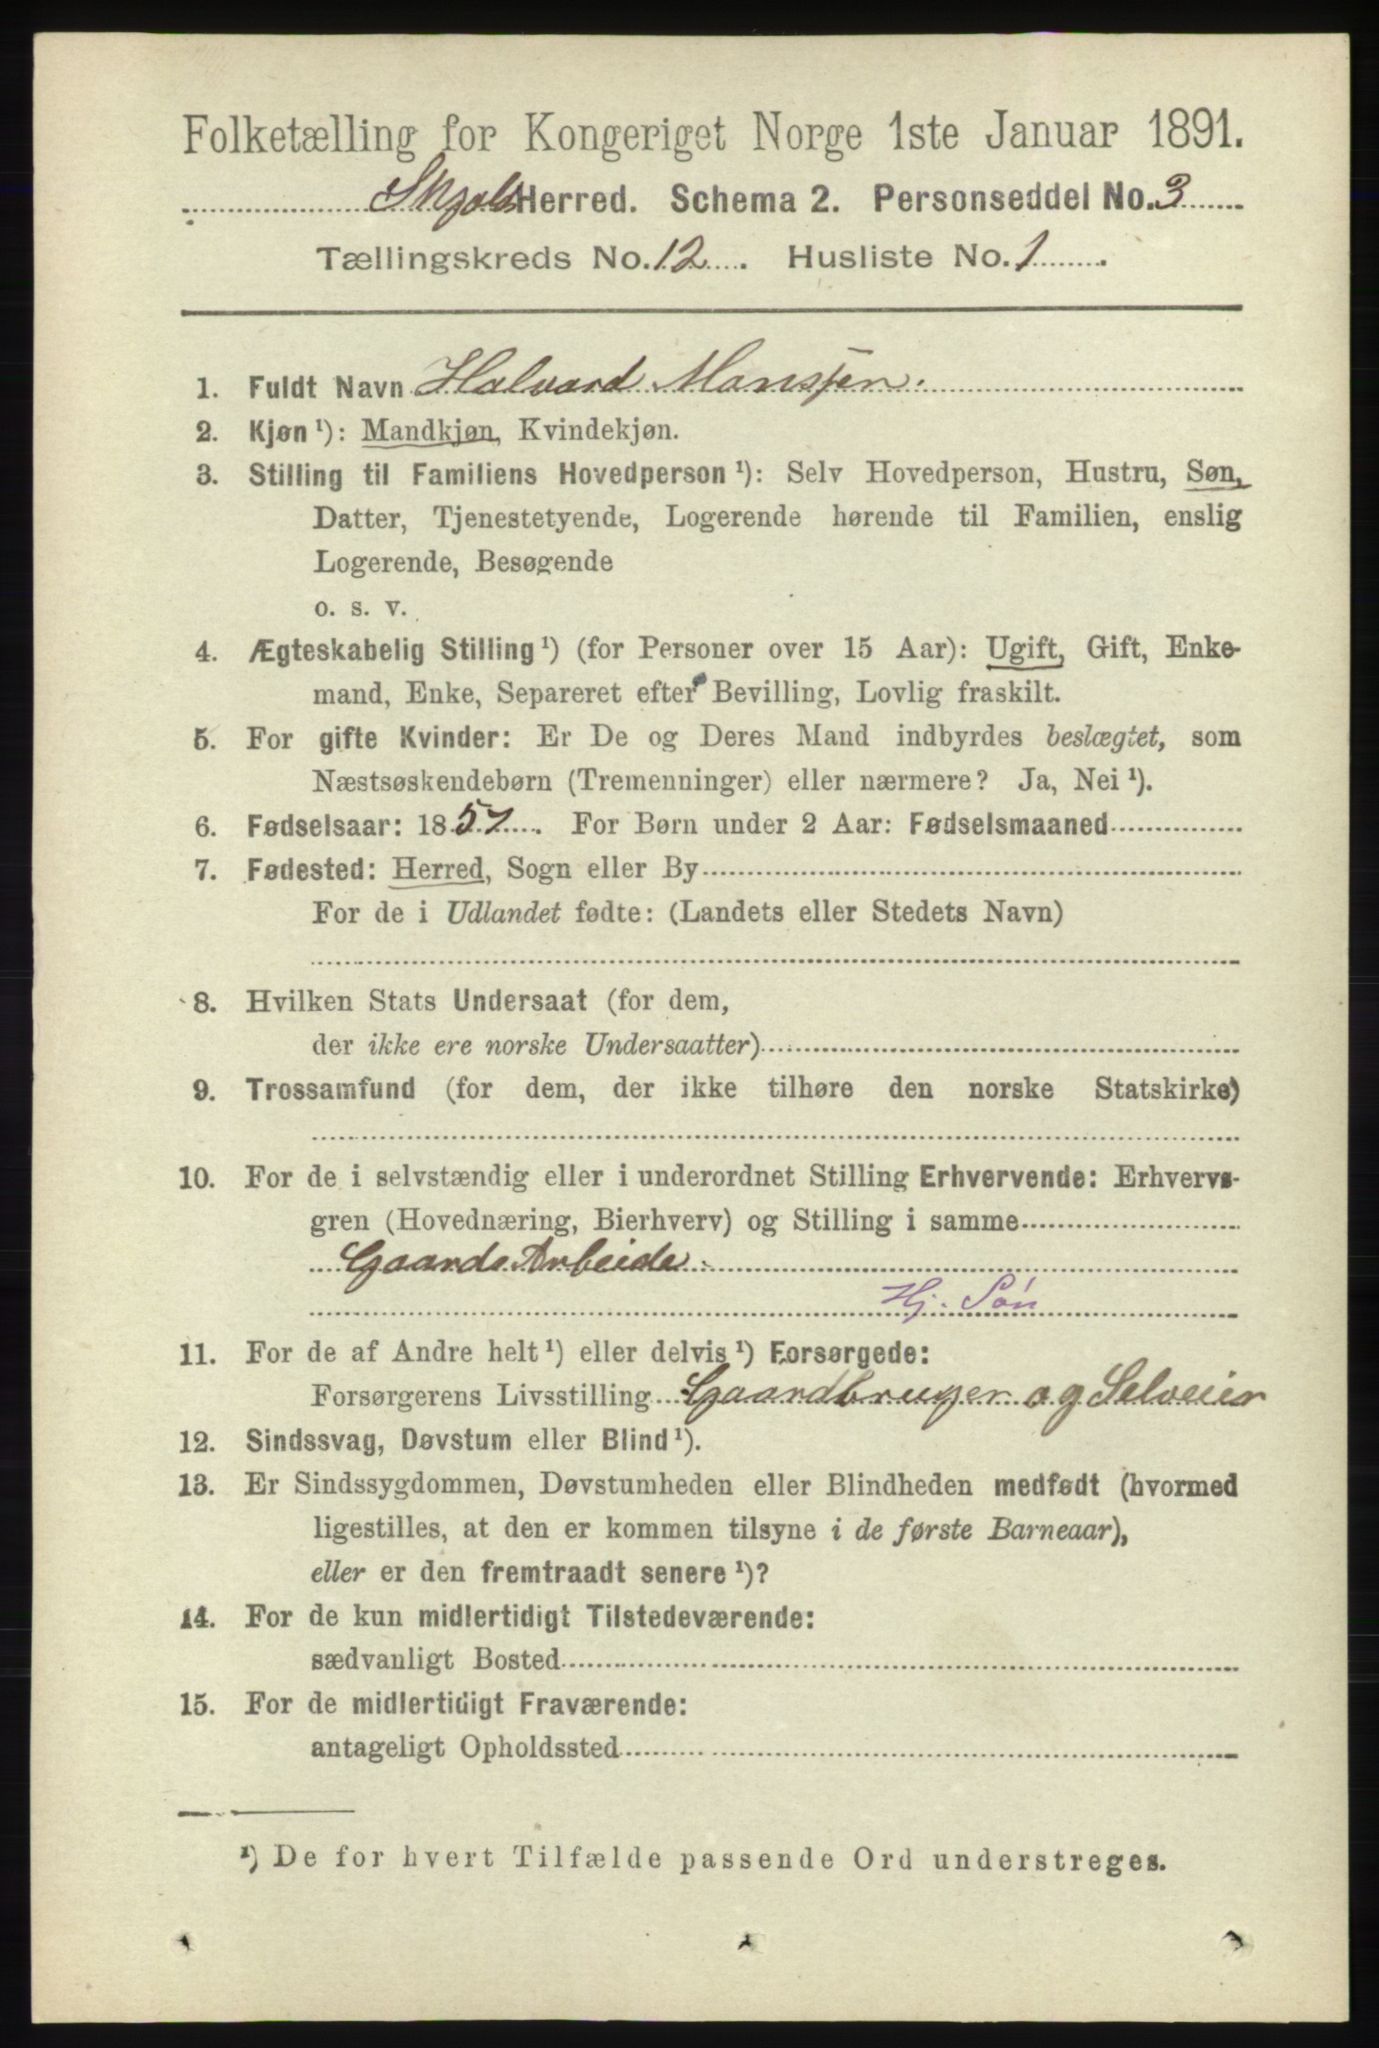 Folketælling for Kongeriget Norge 1ste Januar 1891.
Skjolds Herred. Schema 2. Personseddel No. 3
Tællingskreds No. 12. Husliste No. 1.
1. Fuldt Navn Halvard Monssen.
2. Kjøn ¹): Mandkjøn, Kvindekjøn.
3. Stilling til Familiens Hovedperson ¹): Selv Hovedperson, Hustru, Søn,
Datter, Tjenestetyende, Logerende hørende til Familien, enslig
Logerende, Besøgende
o. s. v.
4. Ægteskabelig Stilling ¹) (for Personer over 15 Aar): Ugift, Gift, Enke-
mand, Enke, Separeret efter Bevilling, Lovlig fraskilt.
5. For gifte Kvinder: Er De og Deres Mand indbyrdes beslægtet, som
Næstsøskendebørn (Tremenninger) eller nærmere? Ja, Nei ¹).
6. Fødselsaar: 1857. For Børn under 2 Aar: Fødselsmaaned
7. Fødested: Herred, Sogn eller By
For de i Udlandet fødte: (Landets eller Stedets Navn)
8. Hvilken Stats Undersaat (for dem,
der ikke ere norske Undersaatter)
9. Trossamfund (for dem, der ikke tilhøre den norske Statskirke)
10. For de i selvstændig eller i underordnet Stilling Erhvervende: Erhvervs-
gren (Hovednæring, Bierhverv) og Stilling i samme
Gaards Arbeide.
Hj. Søn
11. For de af Andre helt ¹) eller delvis ¹) Forsørgede:
Forsørgerens Livsstilling Gaardbruger og Selveier
12. Sindssvag, Døvstum eller Blind ¹).
13. Er Sindssygdommen, Døvstumheden eller Blindheden medfødt (hvormed
ligestilles, at den er kommen tilsyne i de første Barneaar),
eller er den fremtraadt senere ¹)?
14. For de kun midlertidigt Tilstedeværende:
sædvanligt Bosted
15. For de midlertidigt Fraværende:
antageligt Opholdssted
¹) De for hvert Tilfælde passende Ord understreges.